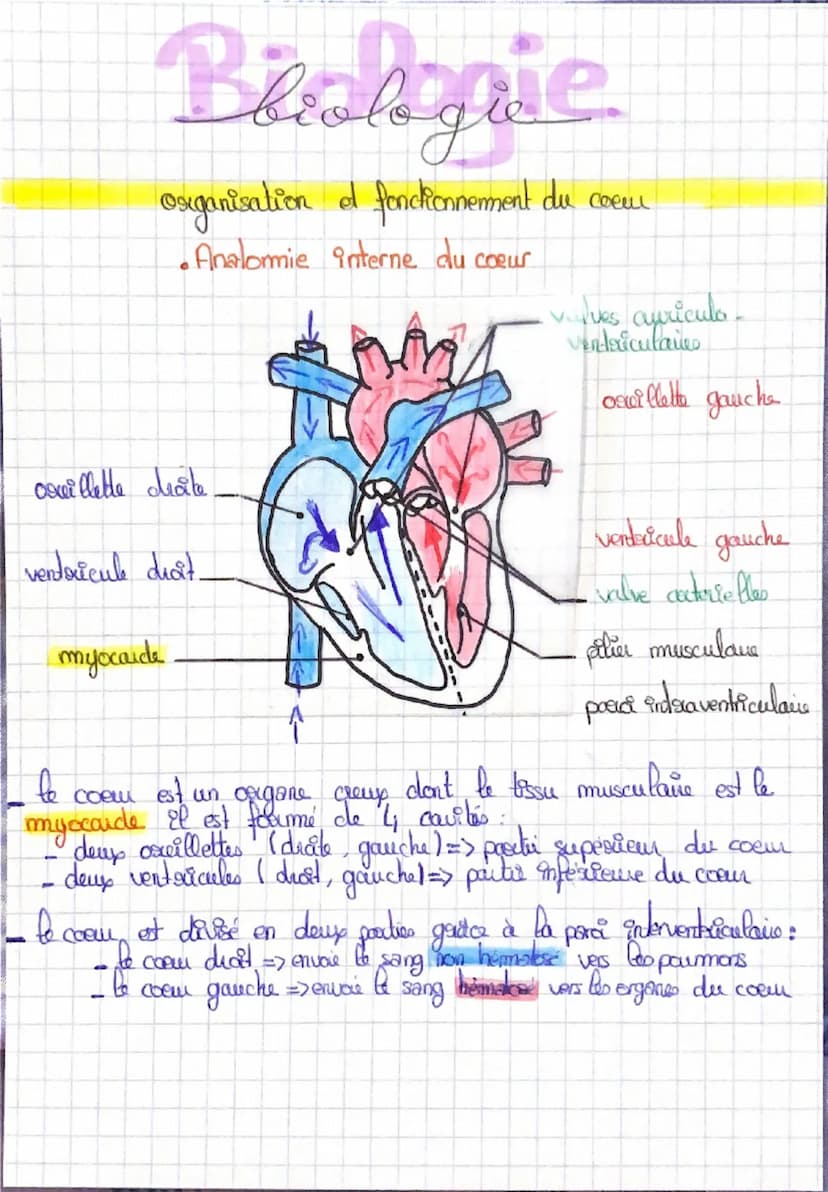 Biologie
biologie
organisation et fonctionnement du coeur
. Anatomie interne du coeur
valves auriculo-
ventriculaires
oreillette gauche
oreillette droite
ventricule gauche
ventricule droit
valve arterielles
myocarde
pilier musculaire
paroi interaventriculaire
- le coeur est un organe creux dont le tissu musculaire est le
myocarde il est formé de 4 cavités :
- deux oreillettes (droite, gauche) => partie supérieur du coeur
- deux ventricules (droit, gauche) => partie inférieure du coeur
- le coeur est divisé en deux parties grâce à la paroi interventriculaire :
- le coeur droit => envoie le sang non hématosé vers les poumons
- le coeur gauche => envoie le sang hématosé vers les organes du coeur